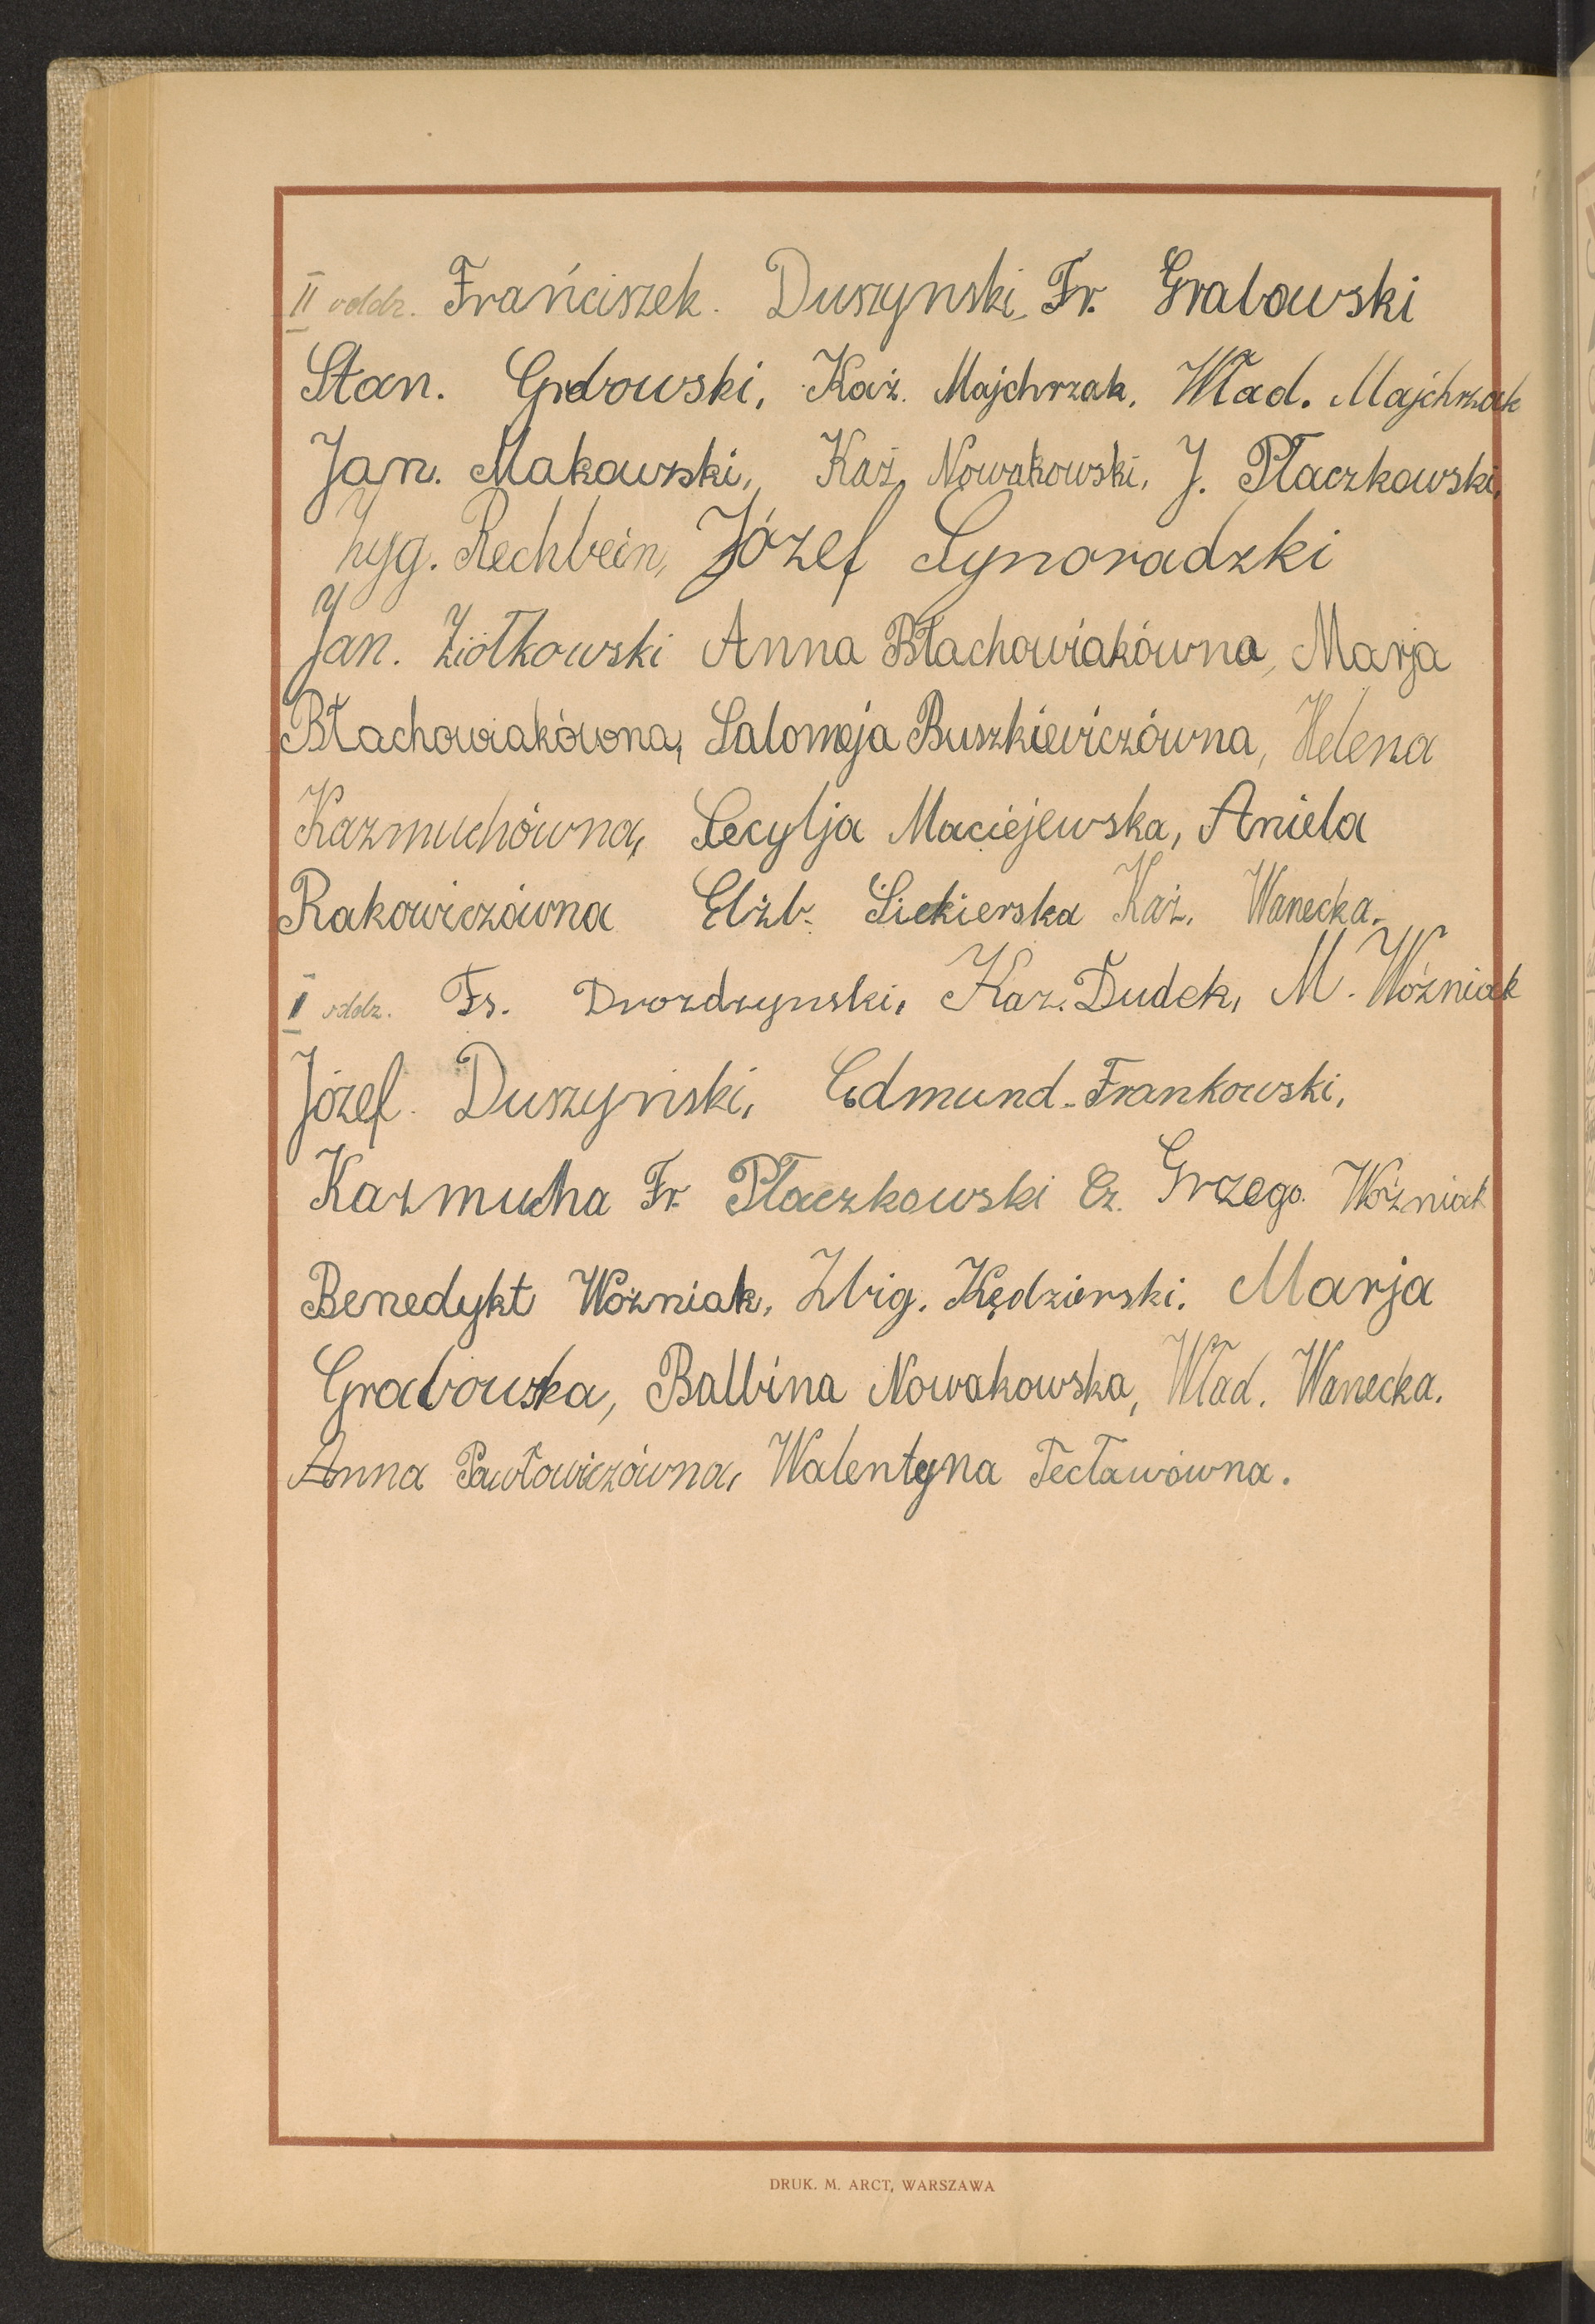 II oddz. Frańciszek. Duszynski, Fr. Grabowski
Stan. Grabowski, Kaź. Majchrzak, Wład. Majchrzak
Jan. Makowski, Kaź, Nowakowski, J. Płaczkowski,
hyg. Rechbein, Józef Synoradzki
Jan. Ziołkowski Anna Błachowiakówna, Marja
Błachowiakówna, Salomeja Buszkiewiczówna, Helena
Kazmuchówna, Cecylja Maciejewska, Aniela
Rakowiczówna Elżb. Siekierska Kaź. Wanecka.
I oddz. Fr. Drozdzynski, Kaz. Dudek, M. Woźniak
Józef. Duszyński, Edmund-Frankowski,
Kazmucha Fr. Płaczkowski Cz. Grzego. Woźniak
Benedykt Woźniak, Zbig. Kędzierski. Marja
Grabowska, Balbina Nowakowska, Wład. Wanecka.
Anna Pawłowiczówna, Walentyna Tecławówna.
DRUK. M. ARCT, WARSZAWA